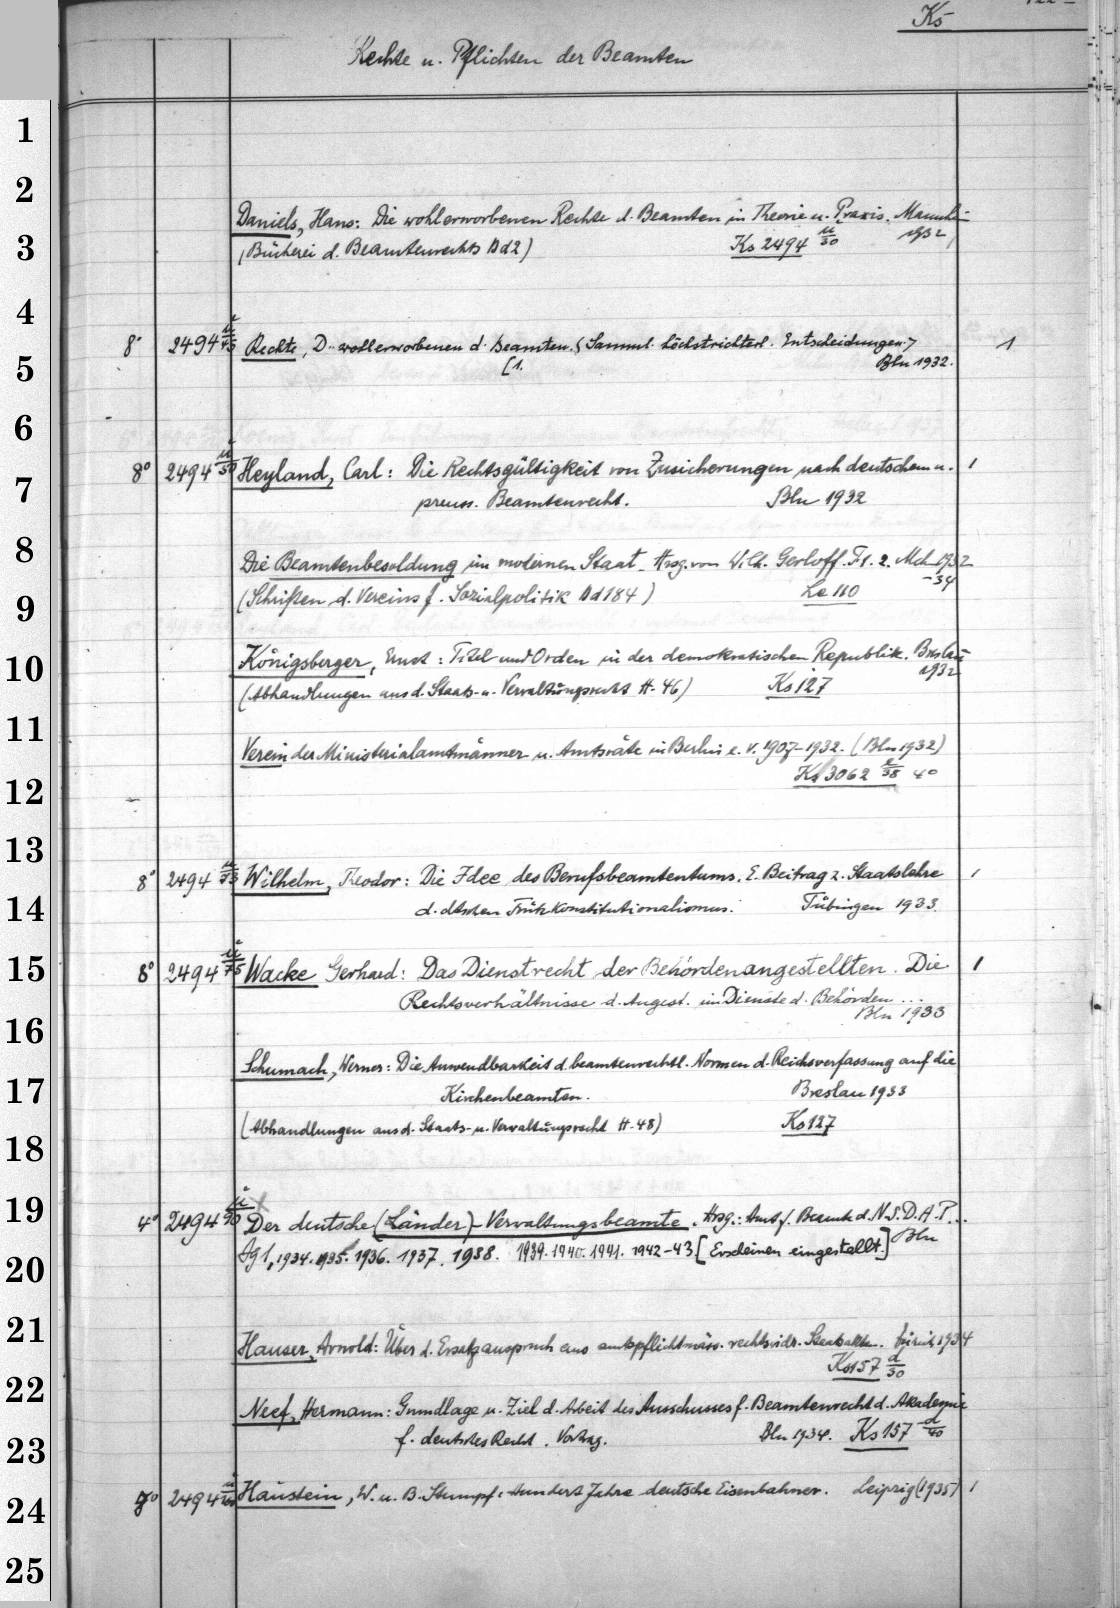 Ks
Rechte u. Pflichten der Beamten
1
2
Daniels, Hans: Die wohlerworbenen Rechte d. Beamten in Theorie u. Praxis. Mannh.
1932
3
(Bücherei d. Beamtenrechts Bd 2) Ks 2494 ü/30
4
8° 2494 ü/45 Rechte, D. wohlerworbenen d. Beamten. (Samml. höchstrichterl. Entscheidungen.) 1
5
[1. Bln 1932.
6
8° 2494 ü/50 Heyland, Carl: Die Rechtsgültigkeit von Zusicherungen nach deutschem u. 1
7
preuss. Beamtenrecht. Bln 1932
8
Die Beamtenbesoldung im modernen Staat. Hrsg. von Wilh. Gerloff. T 1. 2. Mch 1932
-34
9
(Schriften d. Vereins f. Sozialpolitik Bd 184) La 110
10
Königsberger, Ernst: Titel und Orden in der demokratischen Republik. Breslau
1932
(Abhandlungen aus d. Staats- u. Verwaltungsrecht H. 46) Ks 127
11
Verein der Ministerialamtmänner u. Amtsräte in Berlin e. V. 1907-1932. (Bln 1932)
Ks 3062 /38 4°
12
13
8° 2494 Wilhelm, Theodor: Die Idee des Berufsbeamtentums. E. Beitrag z. Staatslehre 1
14
d. dtschen Frühkonstitutionalismus. Tübingen 1933.
15
8° 2494 ü/75 Wacke Gerhard: Das Dienstrecht der Behördenangestellten. Die 1
Rechtsverhältnisse d. Angest. im Dienste d. Behörden ...
16
Bln 1933
Schumach, Werner: Die Anwendbarkeit d. beamtenrechtl. Normen d. Reichsverfassung auf die
17
Kirchenbeamten. Breslau 1933
(Abhandlungen aus d. Staats- u. Verwaltungsrecht H. 48) Ks 127
18
19
4° 2494 ü/90 Der deutsche (Länder)-Verwaltungsbeamte. Hrsg.: Amt f. Beamte d. N.S.D.A.P...
Bln
Jg 1, 1934. 1935. 1936. 1937. 1938. 1939. 1940. 1941. 1942-43 [Erscheinen eingestellt.]
20
21
Hauser, Arnold: Über d. Ersatzanspruch aus amtspflichtmäss. rechtswidr. Staatsakten. Zürich 1934
Ks 157 d/30
22
Neef, Hermann: Grundlage u. Ziel d. Arbeit des Ausschusses f. Beamtenrecht d. Akademie
23
f. deutsches Recht. Vortrag. Bln 1934. Ks 157 d/40
24
8° 2494 Haustein, W. u. B. Stumpf: Hundert Jahre deutsche Eisenbahner. Leipzig (1935) 1
25